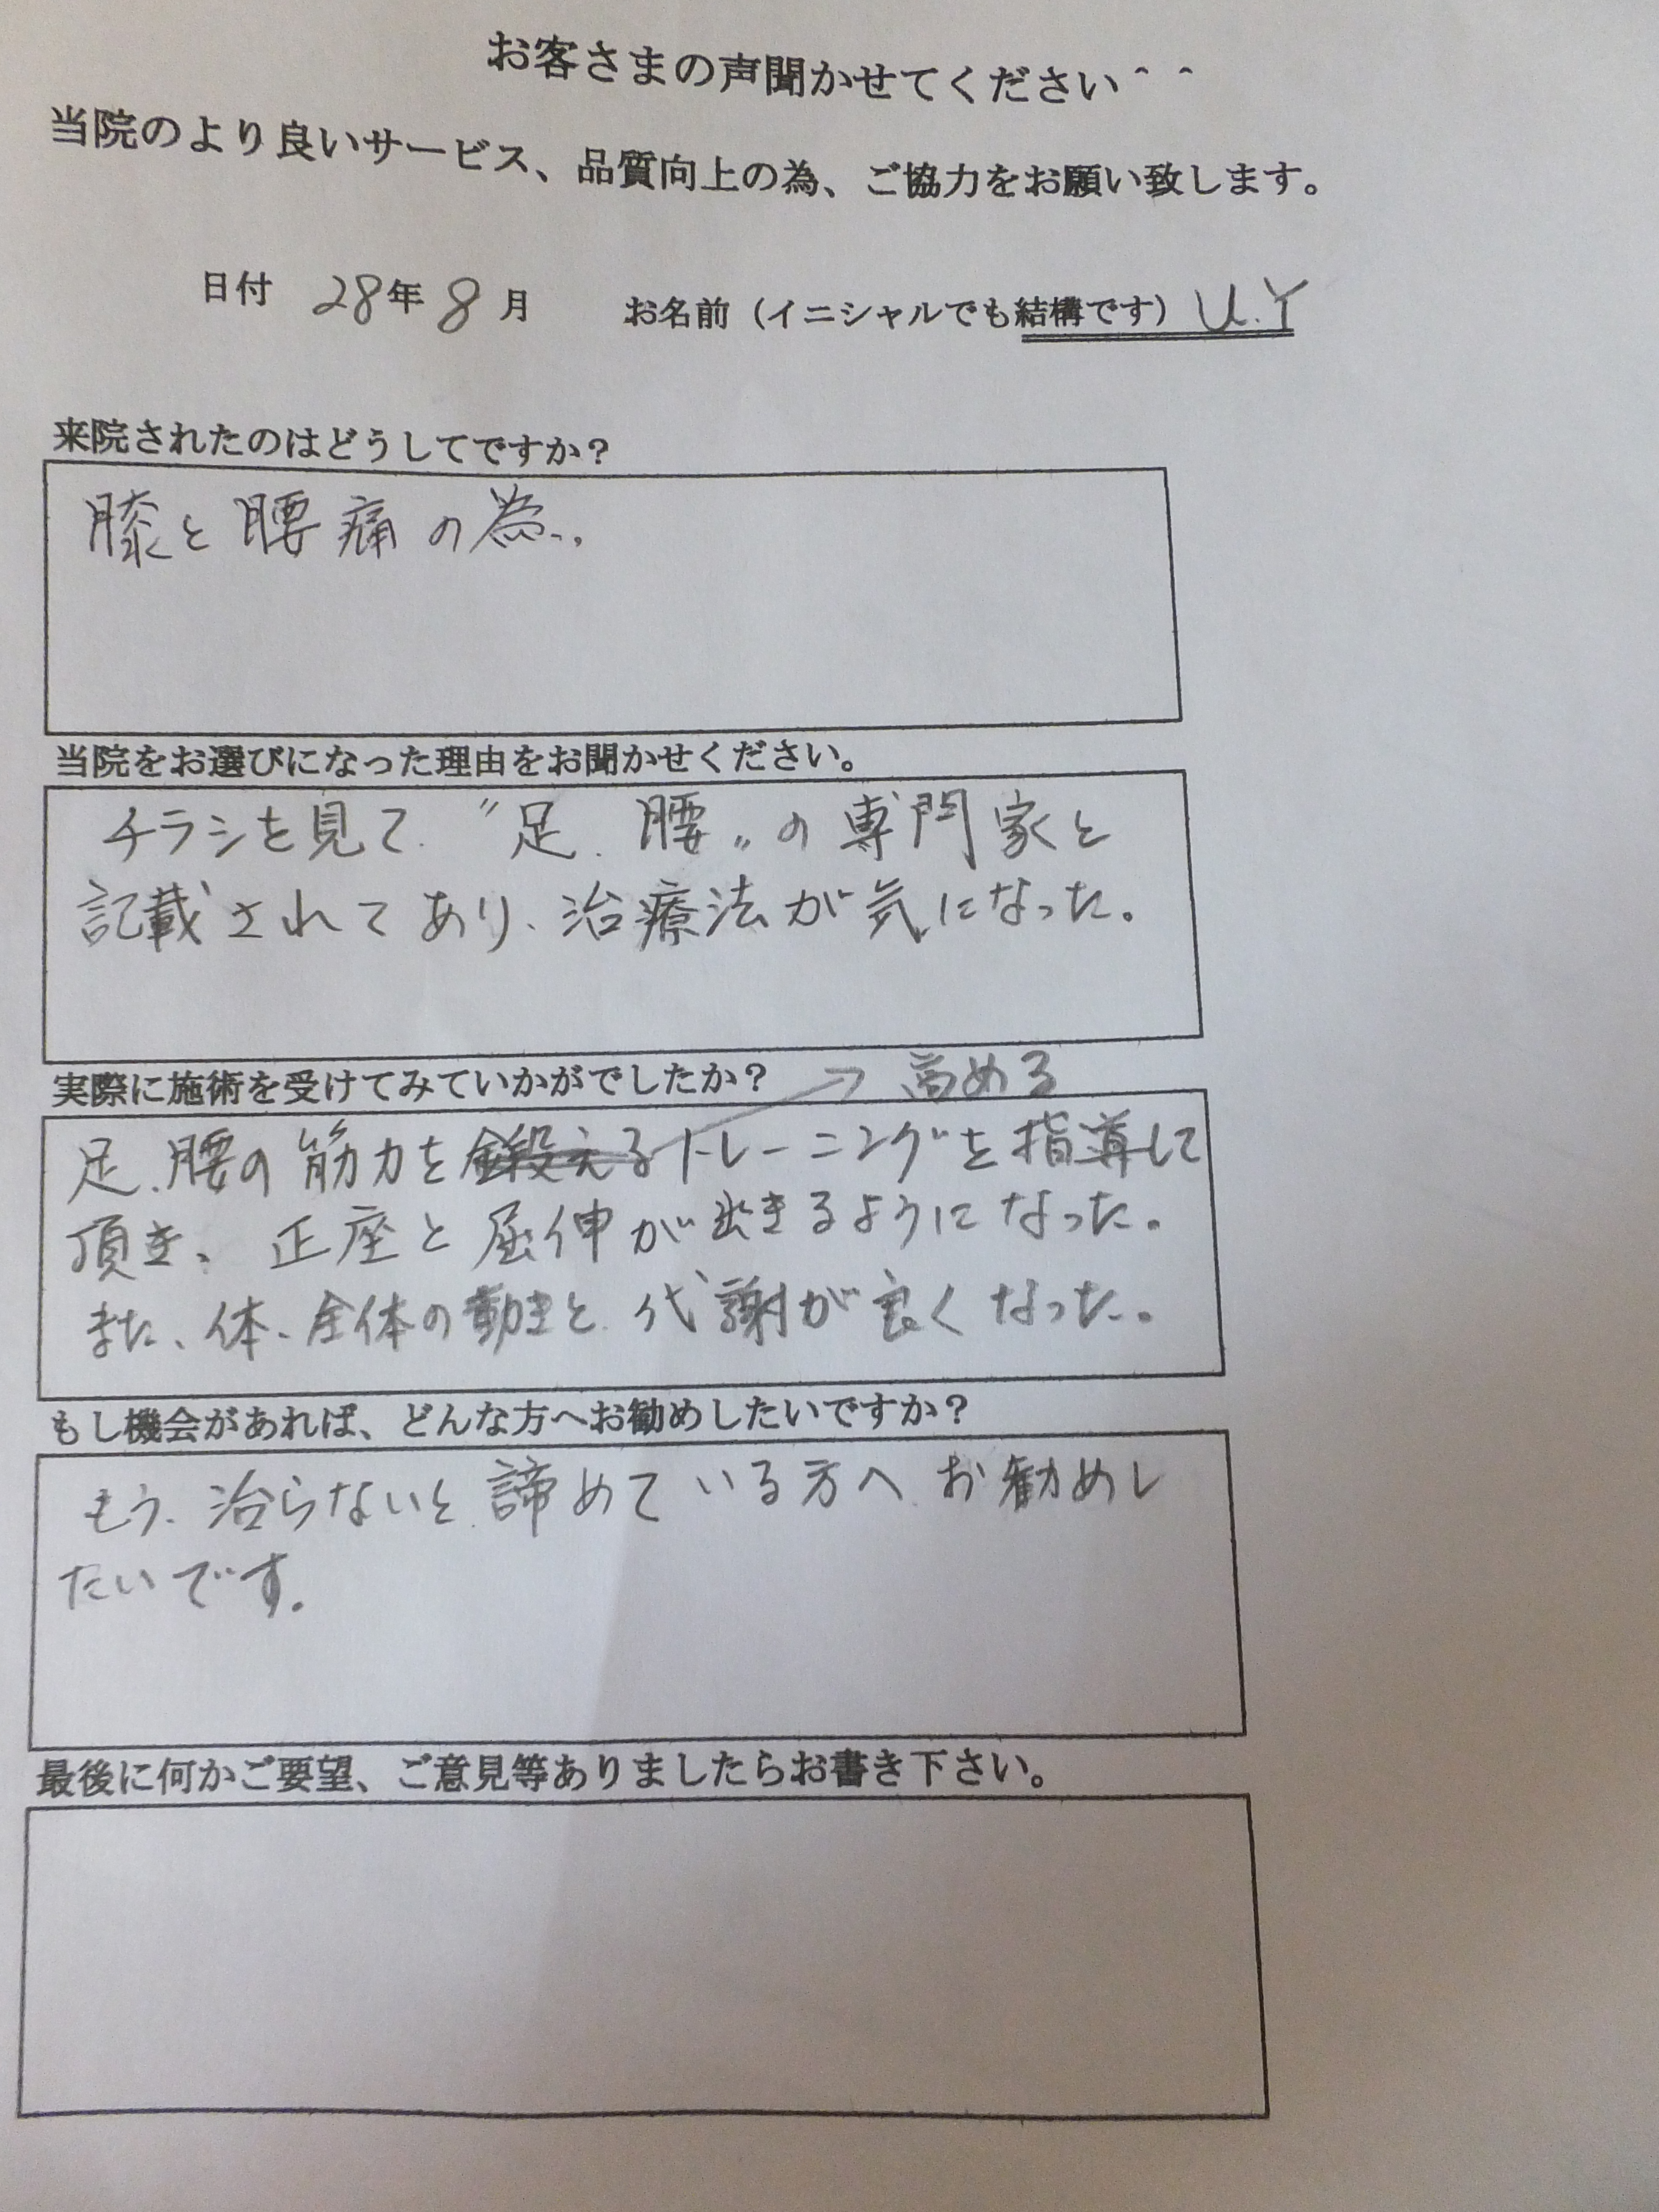 お客さまの声聞かせてください＾＾
当院のより良いサービス、品質向上の為、ご協力をお願い致します。
日付 28年 8月 お名前（イニシャルでも結構です） U.Y
来院されたのはどうしてですか？
膝と腰痛の為..
当院をお選びになった理由をお聞かせください。
チラシを見て、〝足、腰〟の専門家と
記載されてあり、治療法が気になった。
実際に施術を受けてみていかがでしたか？ → 高める
足、腰の筋力を鍛えるトレーニングを指導して
頂き、正座と屈伸が出きるようになった。
また、体、全体の動きと、代謝が良くなった。
もし機会があれば、どんな方へお勧めしたいですか？
もう、治らないと、諦めている方へ、お勧めし
たいです。
最後に何かご要望、ご意見等ありましたらお書き下さい。